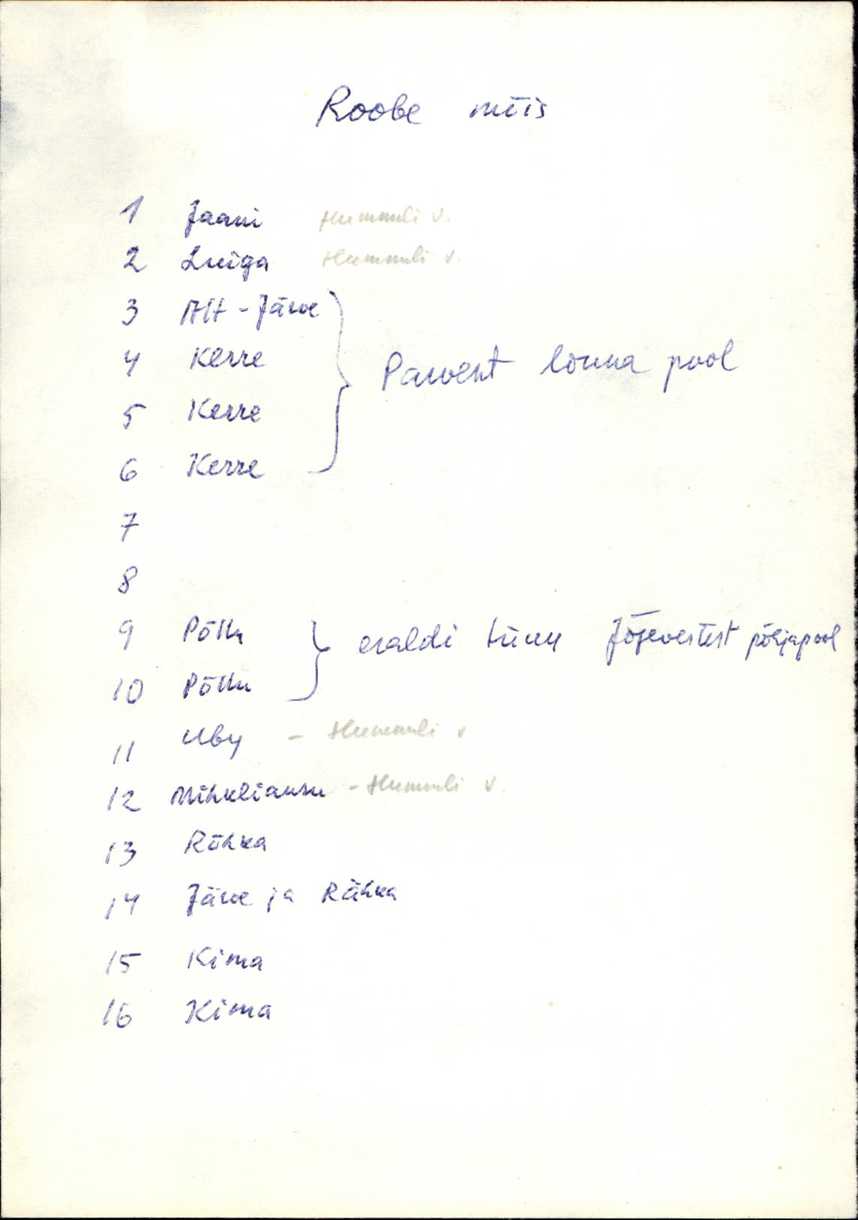 Roobe mõis
1 Jaani Hummuli v.
2 Luiga Hummuli v.
3 Alt-Järve
4 Kerre
Parvest lõuna pool
5 Kerre
6 Kerre
7
8
9 Põllu
eraldi tükk Jõgevestest põhjapool
10 Põllu
11 Uby - Hummuli v
12 Mihkliansu - Hummuli v.
13 Rõhka
14 Järve ja Rähka
15 Kima
16 Kima